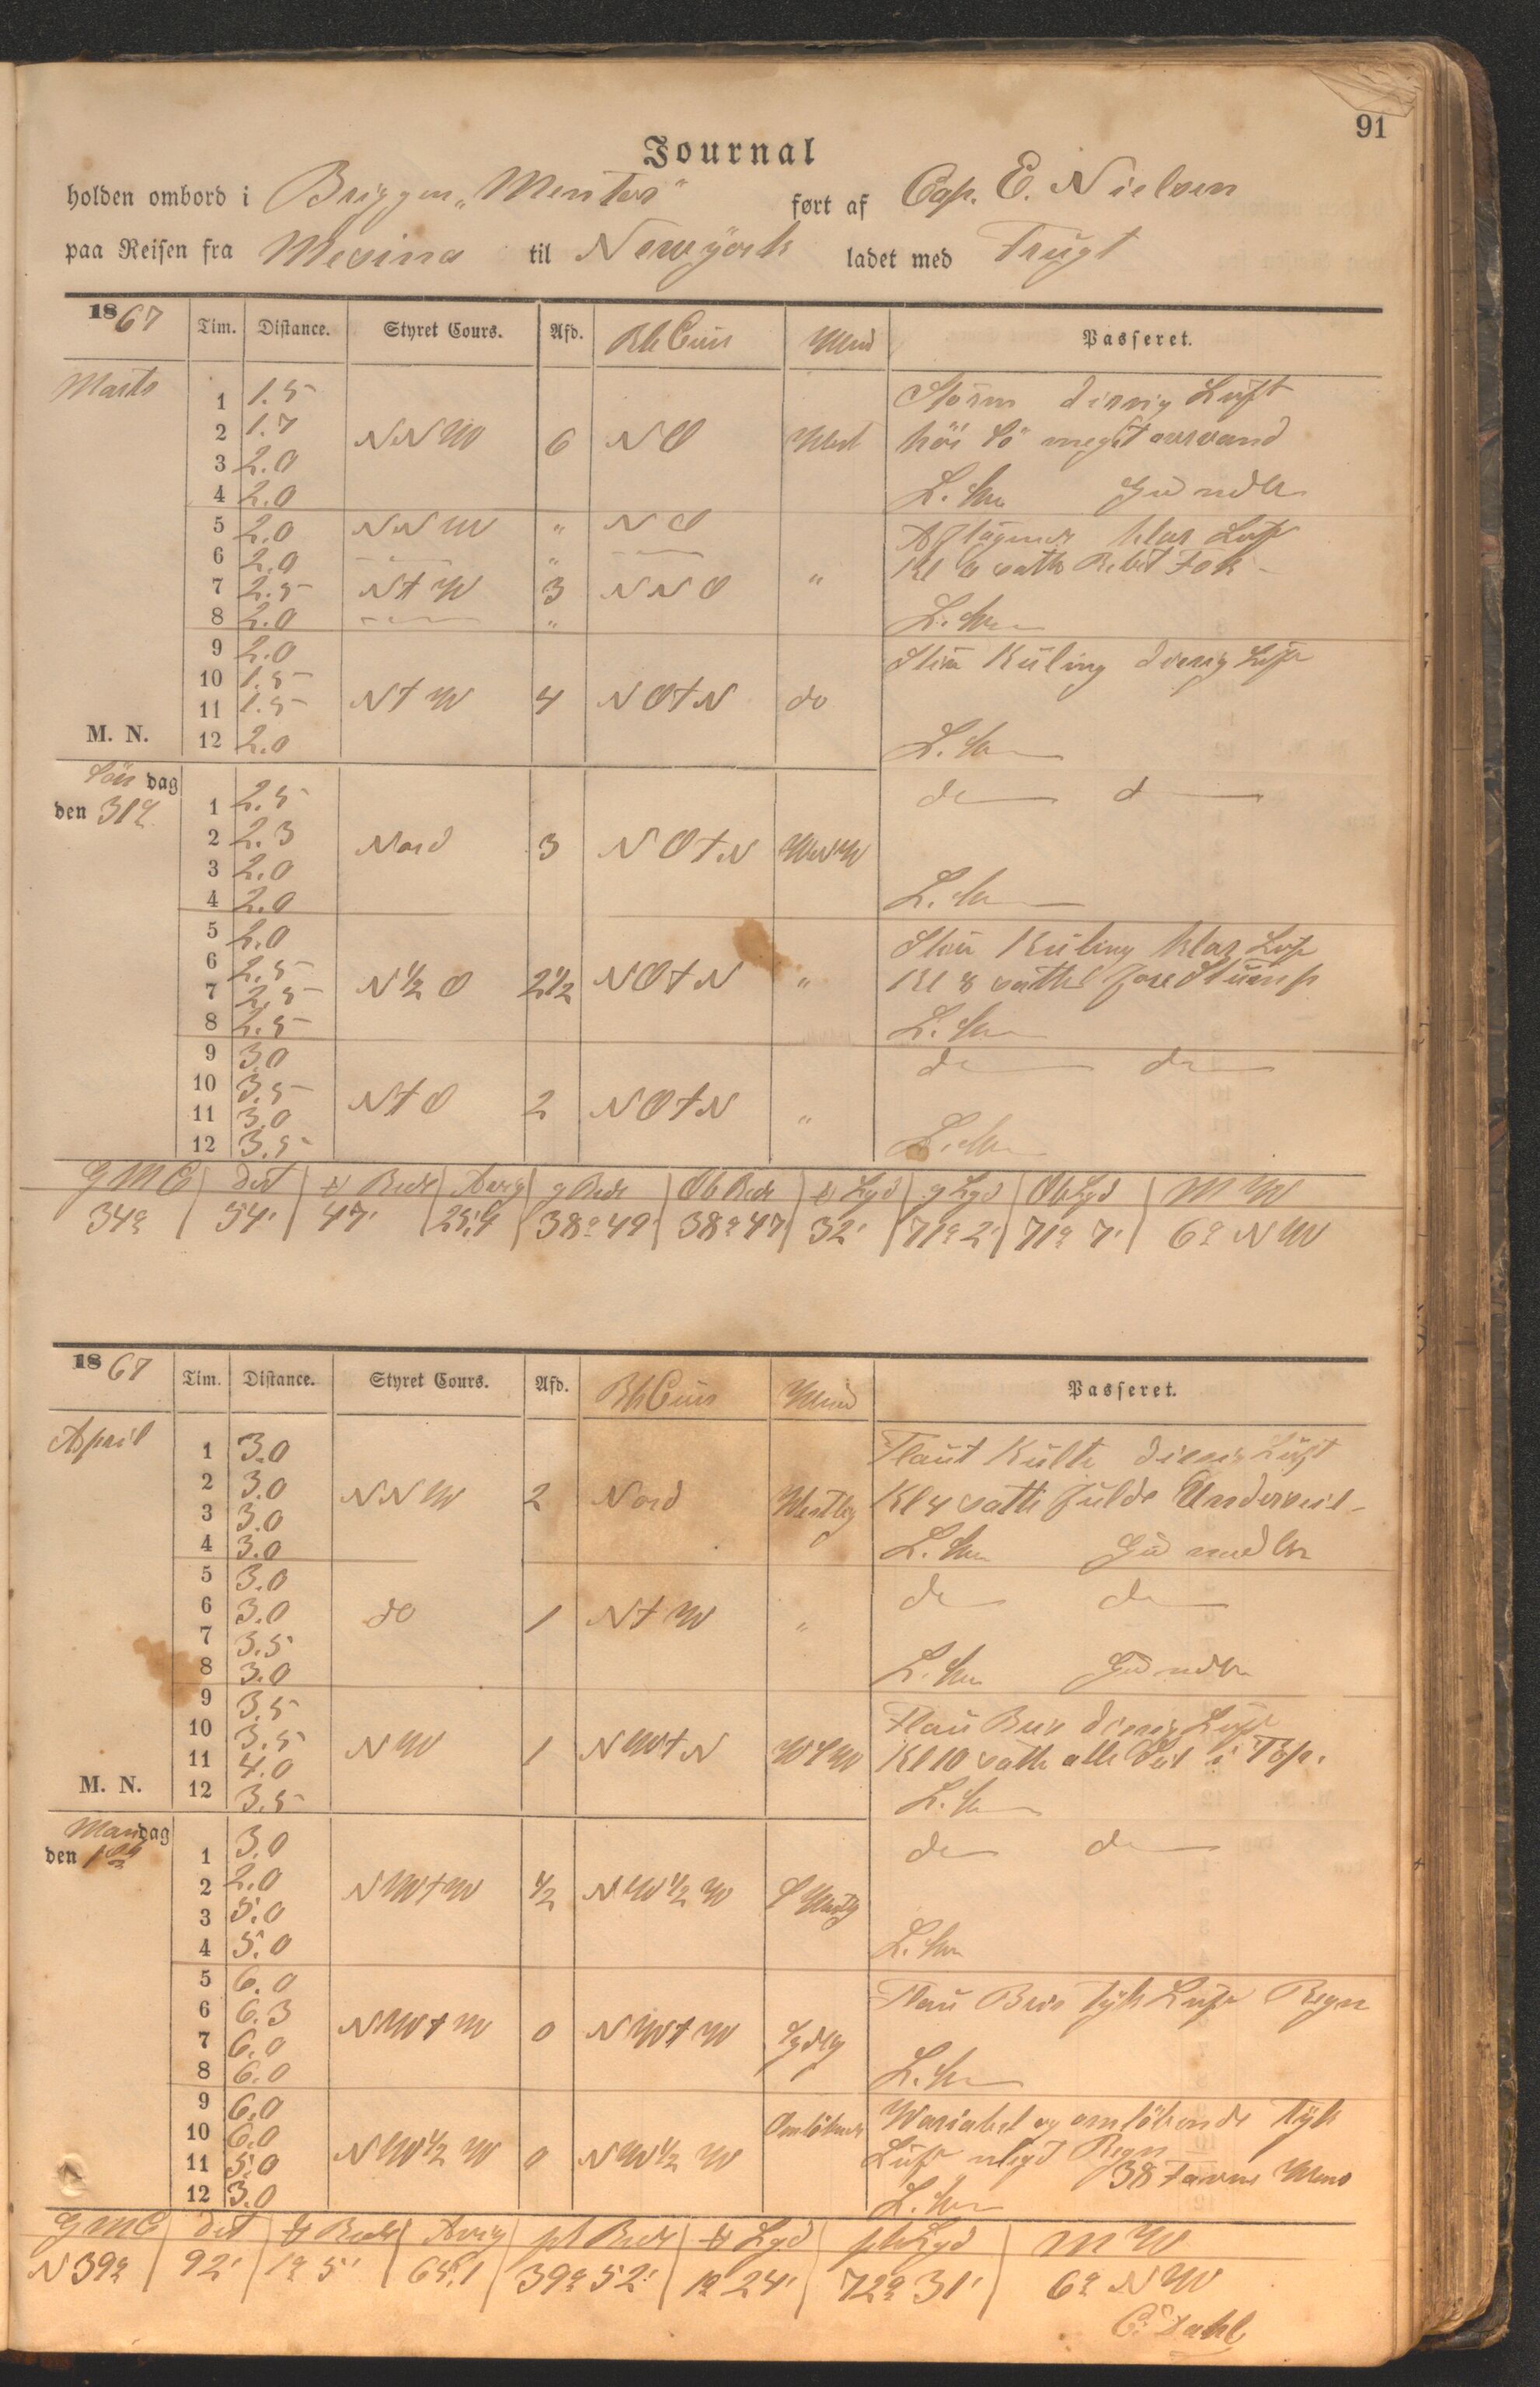 91
Journal
holden ombord i Briggen „Mentor" ført af Cap. E. Nielsen
paa Reisen fra Mesina til Newyork ladet med Frugt
1867 Tim. Distance. Styret Cours. Afd. Wind Passeret.
Marts 1 1.5 Storm diesig Luft
2 1.7 NNW 6 NO West höi Sö meget overvand
3 2.0
4 2.0
5 2.0 NNW " NO Klar Luft
6 2.0 " Kl 6 satte Rebet Fok
7 2.5 NtW 3 NNO "
8 2.0 "
9 2.0 Stiv Küling diesig Luft
10 1.5
11 1.5 NtW 4 NOtN do
M. N. 12 2.0
Sön dag
den 31te 1 2.5
2 2.3 Nord 3 NOtN WNW
3 2.0
4 2.0
5 2.0 Stiv Küling klar Luft
6 2.5
7 2.5 N½O 2½ NOtN " Kl 8 satte
8 2.5
9 3.0
10 3.5
11 3.0 NtO 2 NOtN "
12 3.5
GMC dist Brede Afvig g Brede Ob Brede Lgd g Lgd Ob Lgd MW
34° 54' 47' 25,9 38° 49' 38° 47' 32' 71° 2' 71° 7' 6° NW
1867 Tim. Distance. Styret Cours. Afd. Wind Passeret.
April 1 3.0 Flaut Kulte diesig Luft
2 3.0 NNW 2 Nord Westlig Kl 4 satte fulde Underseil
3 3.0
4 3.0
5 3.0
6 3.0 do 1 NtW "
7 3.5
8 3.0
9 3.5 Flau Bris diesig Luft
10 3.5
11 4.0 NW 1 NWtN WSW Kl 10 satte alle Seil i Top.
M. N. 12 3.5
Mandag
den 1ste 1 3.0
2 2.0 NWtW ½ NW½W
3 5.0
4 5.0
5 6.0 Flau Bris tyk Luft Regn
6 6.3 NWtW 0 NWtW Sydlig
7 6.0
8 6.0
9 6.0 Omlöbende Wariabel og omlöbende tyk
10 6.0 Luft Regn
11 5.0 NW½W 0 NW½W 38 Favne
12 3.0
GMC dist Brede Afvig pl Brede Lgd pl Lgd MW
N39° 92' 1° 5' 65,1 39° 52' 1° 24' 72° 31' 6° NW
C. Dahl